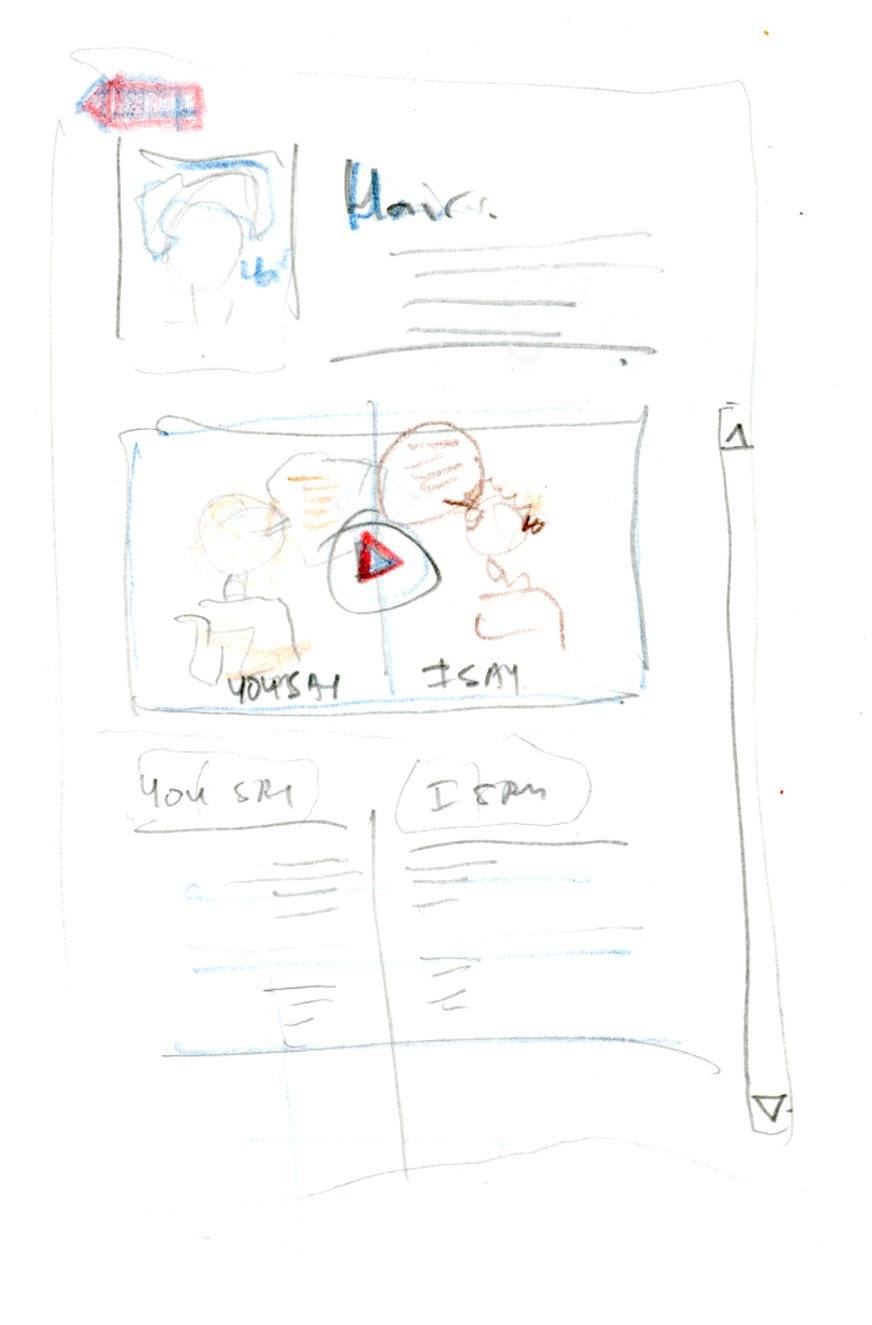 Hair.
YOU SAY I SAY
YOU SAY I SAY